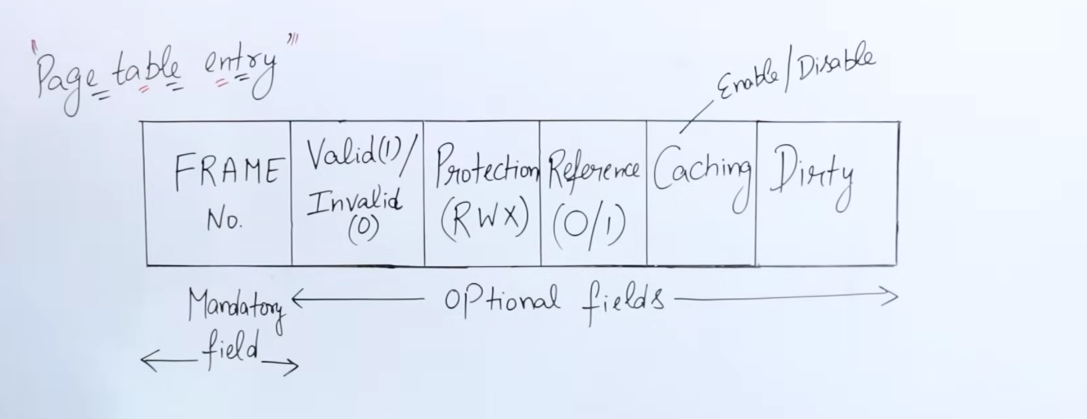 "Page table entry"
Enable/Disable
FRAME No.
Valid(1)/
Invalid
(0)
Protection
(RWX)
Reference
(0/1)
Caching
Dirty
Mandatory
field
Optional fields